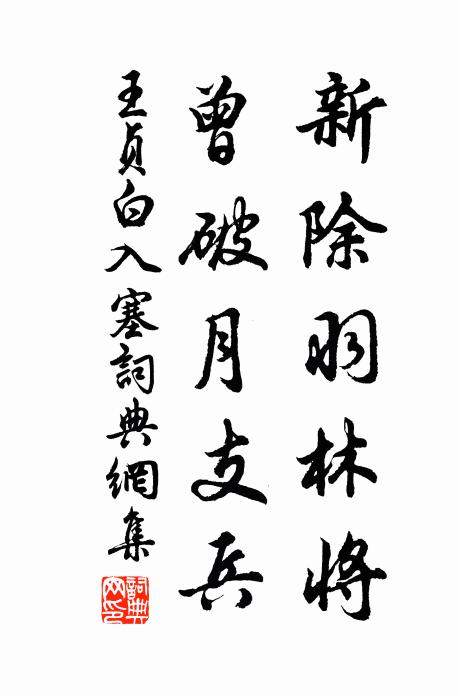 新除羽林將
曾破月支兵
王貞白入塞詞典網集
詞典网印